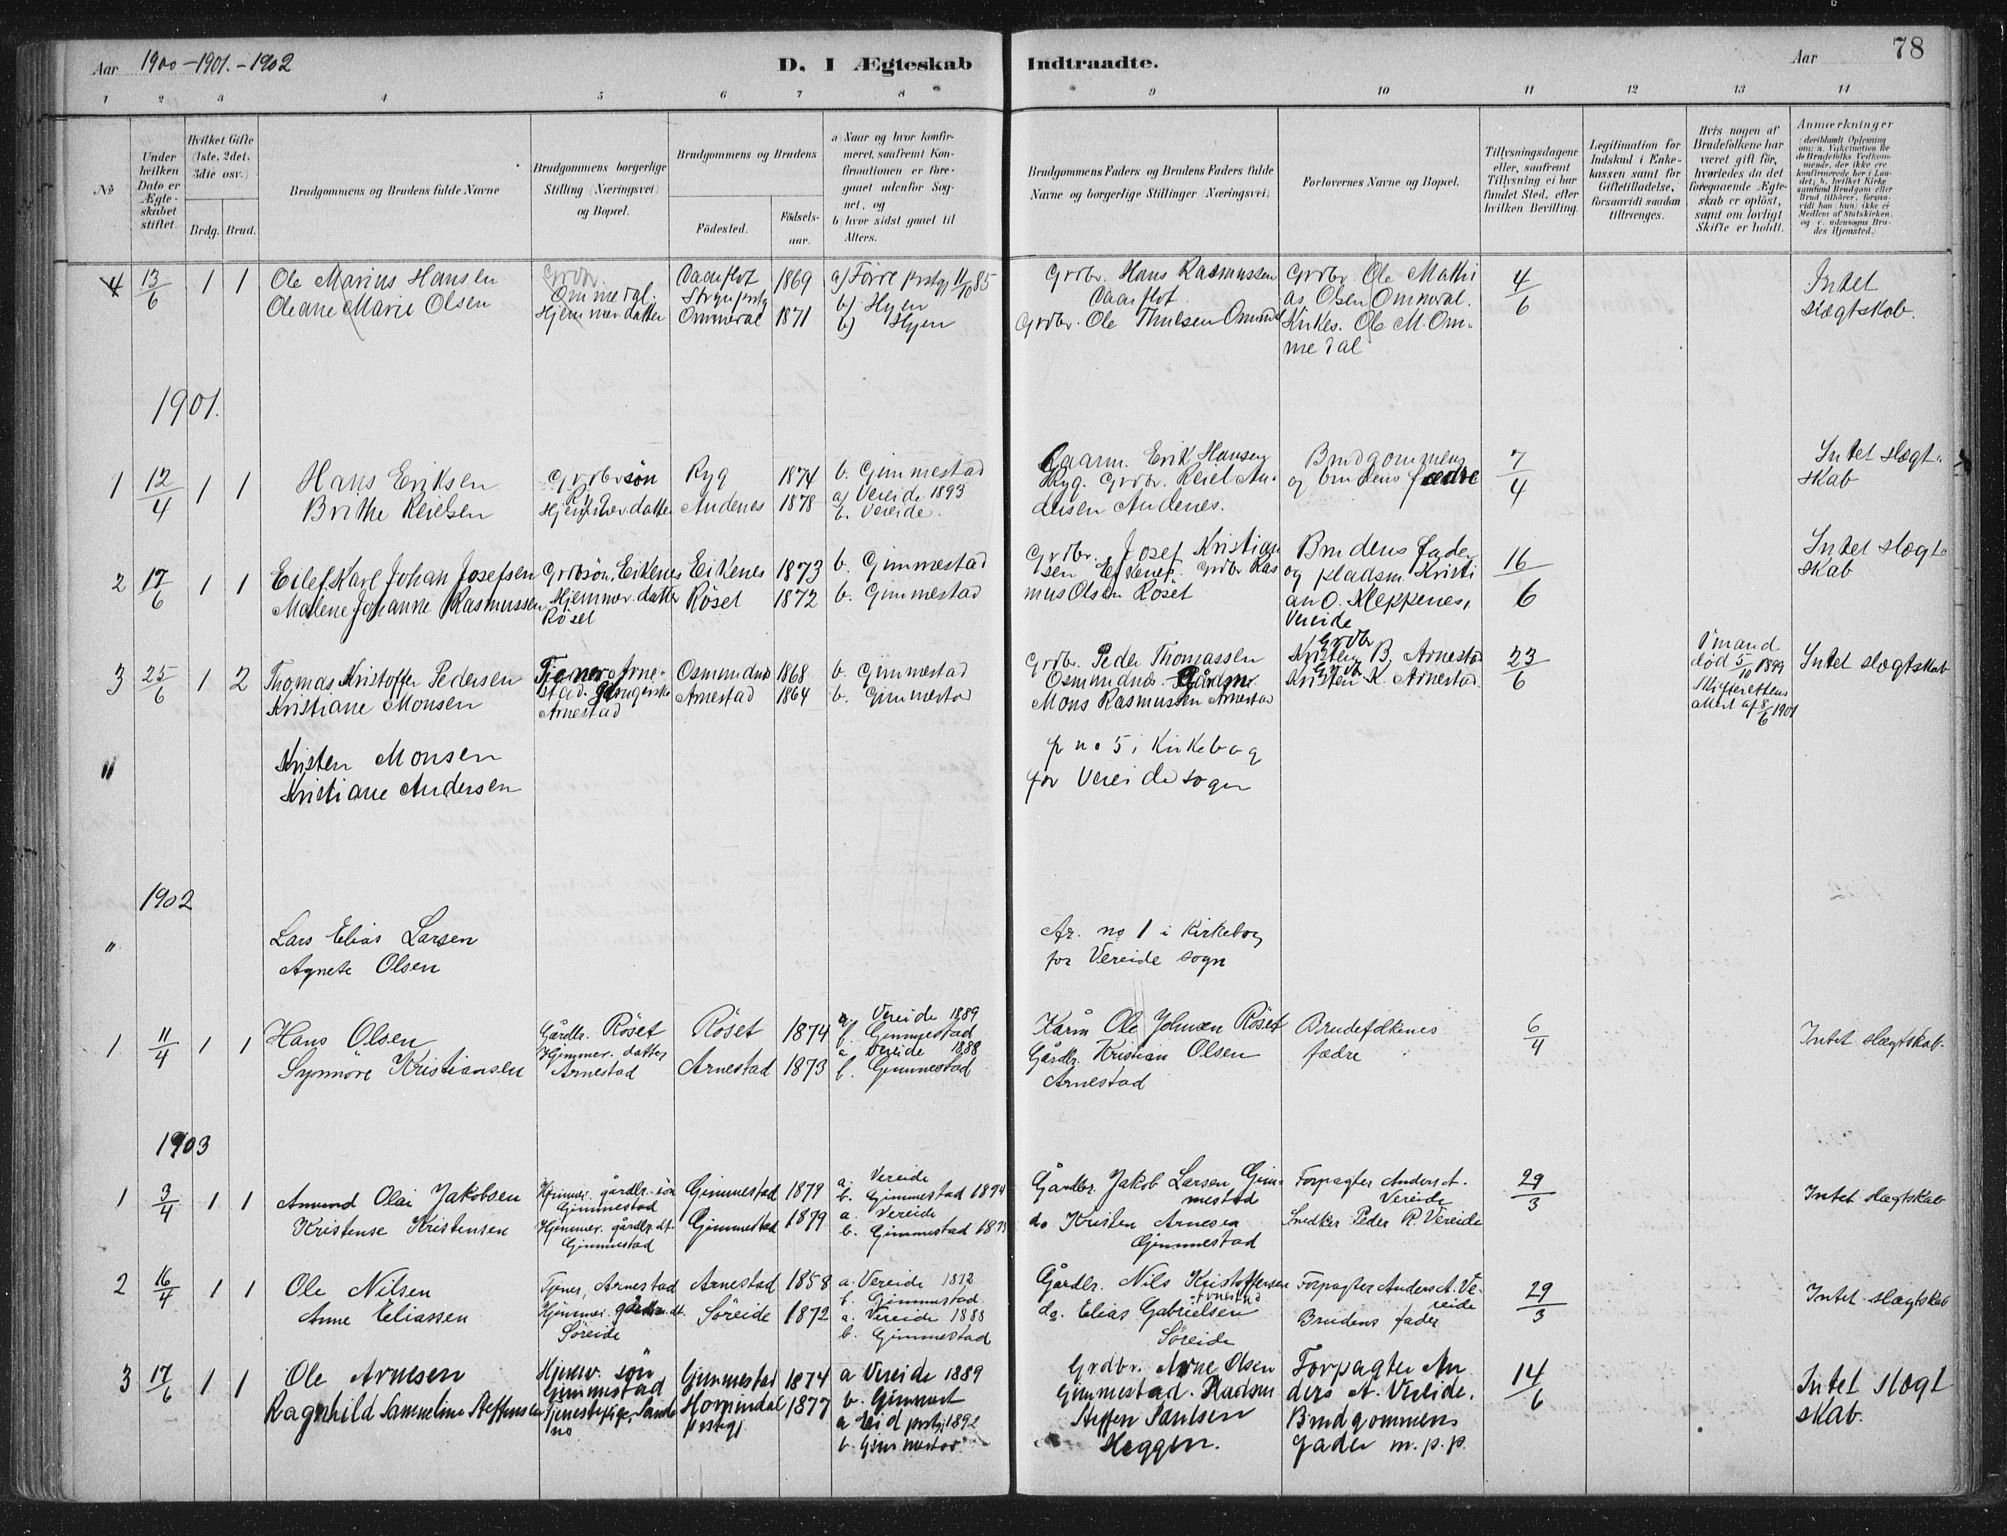 Aar 1900-1901.-1902
D. I Ægteskab Indtraadte.
Aar 78
1 2 3 4 5 6 7 8 9 10 11 12 13 14
No
Under hvilken Dato er Ægteskabet stiftet.
Hvilket Gifte (1ste, 2det, 3die osv.)
Brdg. Brud.
Brudgommens og Brudens fulde Navne
Brudgommens borgerlige Stilling (Næringsvei) og Bopæl.
Brudgommens og Brudens
Fødested. Fødselsaar.
a) Naar og hvor konfirmeret, saafremt Konfirmationen er foregaaet udenfor Sognet, og
b) hvor sidst gaaet til Alters.
Brudgommens Faders og Brudens Faders fulde Navne og borgerlige Stillinger (Næringsvei).
Forlovernes Navne og Bopæl.
Tillysningsdagene eller, saafremt Tillysning ei har fundet Sted, efter hvilken Bevilling.
Legitimation for Indskud i Enkekassen samt for Giftetilladelse, forsaavidt saadan tiltrænges.
Hvis nogen af Brudefolkene har været gift før, hvorledes da det foregaaende Ægteskab er opløst, samt om lovligt Skifte er holdt.
Anmærkninger
4 13/6 1 1 Ole Marius Hansen
Oleane Marie Olsen
Grdbr. Ommedal.
Hjemmev. datter
Vaaaflot Strynprstg 1869
Ommedal 1871
a) Førre prstgj 11/10 85
b) Hyen
b) Hyen
Grdbr. Hans Rasmussen
Grdbr. Ole Thulsen
Grdbr. Ole Mathi
as Olsen Ommedal.
Kirkes. Ole M. Om-
medal
4/6
Intet
slægtskab.
1901.
1 12/4 1 1 Hans Eriksen
Brithe Reielsen
Grdbrsön
Ryg
Hjemmev. datter
Ryg 1874
Andenes 1878
b. Gimmestad
a) Vereide 1893
b. Vereide.
Kaarm. Erik Hansen
Ryg. Grdbr. Reiel An-
dersen Andenes.
Brudgommens
og brudens fædre
7/4
Intet slægt-
skab
2 17/6 1 1 Eilef Karl Johan Josefsen
Malene Johanne Rasmussen
Grdbsön, Eikenes
Hjemmev. datter
Röset
Eikenes 1873
Röset 1872
b. Gimmestad
b. Gimmestad
Grdbr. Josef Kristian
sen Eikenes. Grdbr Ras
mus Olsen Röset
Brudens fader
og pladsm. Kristi
an O. Kleppenes,
Vereide
16/6
Intet slægt-
skab
3 25/6 1 2 Thomas Kristoffer Pedersen
Kristiane Monsen
Tjener Arne-
stad.
Arnestad
Osmundnes 1868
Arnestad 1864
b. Gimmestad
b. Gimmestad
Grdbr. Peder Thomassen
Osmundnes
Mons Rasmussen Arnestad
Grdbr
Kristen B. Arnestad
Grdbr
Kristen K. Arnestad.
23/6
død 5/10 1899
Skifterettens
Attest af 8/6 1901
Intet slægtskab
" Kristen Monsen
Kristiane Andersen
no 5 i Kirkebog
for Vereide sogn
1902
" Lars Elias Larsen
Agnete Olsen
no 1 i kirkebog
for Vereide sogn
1 11/4 1 1 Hans Olsen
Synnöve Kristiansen
Gårdbr. Röset
Hjemmev. datter
Arnestad
Röset 1874
Arnestad 1873
a. Vereide 1889
b. Gimmestad
a Vereide 1888
b. Gimmestad
Kårm Ole Johnsen Röset
Gårdbr. Kristian Olsen
Arnestad
Brudefolkenes
fædre
6/4
Intet slægtskab.
1903
1 3/4 1 1 Amund Olai Jakobsen
Kristense Kristensen
Hjemmev. gårdbr. sön
Gimmestad
Hjemmev. gårdbr. dt.
Gimmestad
Gimmestad 1879
Gimmestad 1879
a. Vereide
b. Gimmestad 1894
a. Vereide
b. Gimmestad
Gårdbr. Jakob Larsen Gim-
mestad
do Kristen Arnesen
Gimmestad
Forpagter Anders A.
Vereide
Snedker Peder R. Vereide
29/3
Intet slægtskab
2 16/4 1 1 Ole Nilsen
Anne Eliassen
Tjener, Arnestad
Hjemmev. gårdbr. dt.
Söreide
Arnestad 1858
Söreide 1872
a. Vereide 1872
b. Gimmestad
a. Vereide 1888
b. Gimmestad
Gårdbr. Nils Kristoffersen
Arnestad
do. Elias Gabrielsen
Söreide
Forpagter Anders A. Ve-
reide
Brudens fader
29/3
Intet slægtskab
3 17/6 1 1 Ole Arnesen
Ragnhild Sammeline Steffensen
Hjemv. sön
Gimmestad
Tjenestepige, Sande
no
Gimmestad 1874
Hornindal 1877
prstgj
a Vereide 1889
b. Gimmest
a Eid prstgj. 1892
b. Gimmestad
Grdbr. Arne Olsen
Gimmestad. Pladsm
Steffen Paulsen
Heggen.
Forpagter An-
ders A. Vereide.
Brudgommens
fader m. p. p.
14/6
Intet slægt
skab.